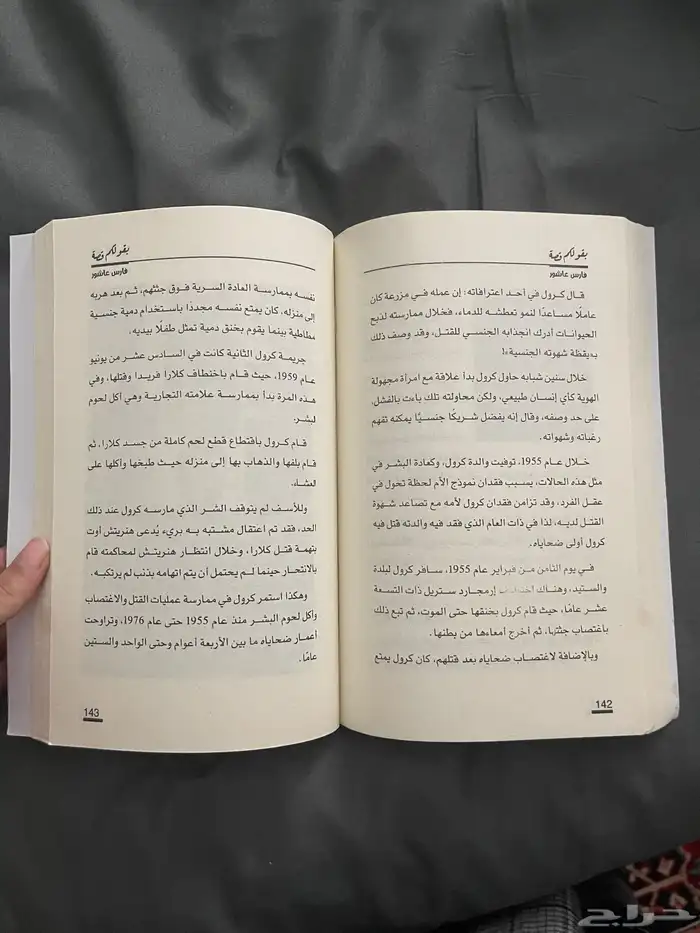 بقولكم قصة
فارس عاشور
قال كرول في أحد اعترافاته: إن عمله في مزرعة كان
عاملًا مساعدًا لنمو تعطشه للدماء، فخلال ممارسته لذبح
الحيوانات أدرك انجذابه الجنسي للقتل، وقد وصف ذلك
بـ«يقظة شهوته الجنسية»!
خلال سنين شبابه حاول كرول بدأ علاقة مع امرأة مجهولة
الهوية كأي إنسان طبيعي، ولكن محاولته تلك باءت بالفشل،
على حد وصفه، وقال إنه يفضل شريكًا جنسيًّا يمكنه تفهم
رغباته وشهواته.
خلال عام 1955، توفيت والدة كرول، وكعادة البشر في
مثل هذه الحالات، يسبب فقدان نموذج الأم لحظة تحول في
عقل الفرد، وقد تزامن فقدان كرول لأمه مع تصاعد شهوة
القتل لديه، لذا في ذات العام الذي فقد فيه والدته قتل فيه
كرول أولى ضحاياه.
في يوم الثامن من فبراير عام 1955، سافر كرول لبلدة
والستيد، وهناك إرمجارد ستريل ذات التسعة
عشر عامًا، حيث قام كرول بخنقها حتى الموت، ثم تبع ذلك
باغتصاب جثتها، ثم أخرج أمعاءها من بطنها.
وبالإضافة لاغتصاب ضحاياه بعد قتلهم، كان كرول يمتع
142
بقولكم قصة
فارس عاشور
نفسه بممارسة العادة السرية فوق جثثهم، ثم بعد هربه
إلى منزله، كان يمتع نفسه مجددًا باستخدام دمية جنسية
مطاطية بينما يقوم بخنق دمية تمثل طفلًا بيديه.
جريمة كرول الثانية كانت في السادس عشر من يونيو
عام 1959، حيث قام باختطاف كلارا فريدا وقتلها، وفي
هذه المرة بدأ بممارسة علامته التجارية وهي أكل لحوم
البشر.
قام كرول باقتطاع قطع لحم كاملة من جسد كلارا، ثم
قام بلفها والذهاب بها إلى منزله حيث طبخها وأكلها على
العشاء.
وللأسف لم يتوقف الشر الذي مارسه كرول عند ذلك
الحد، فقد تم اعتقال مشتبه به بريء يُدعى هنريتش أوت
بتهمة قتل كلارا، وخلال انتظار هنريتش لمحاكمته قام
بالانتحار حينما لم يحتمل أن يتم اتهامه بذنب لم يرتكبه.
وهكذا استمر كرول في ممارسة عمليات القتل والاغتصاب
وأكل لحوم البشر منذ عام 1955 حتى عام 1976، وتراوحت
أعمار ضحاياه ما بين الأربعة أعوام وحتى الواحد والستين
عامًا.
143
حراج